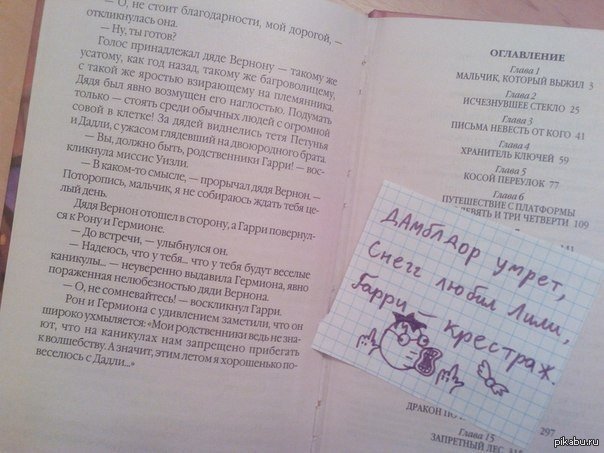 — О, не стоит благодарности, мой дорогой, —
откликнулась она.
— Ну, ты готов?
Голос принадлежал дяде Вернону — такому же
усатому, как год назад, такому же багроволицему,
с такой же яростью взирающему на племянника.
Дядя был явно возмущен его наглостью. Подумать
только — стоять среди обычных людей с огромной
совой в клетке! За дядей виднелись тетя Петунья
и Дадли, с ужасом глядевший на двоюродного брата.
— Вы, должно быть, родственники Гарри! — вос-
кликнула миссис Уизли.
— В каком-то смысле, — прорычал дядя Вернон. —
Поторопись, мальчик, я не собираюсь ждать тебя це-
лый день.
Дядя Вернон отошел в сторону, а Гарри повернул-
ся к Рону и Гермионе.
— До встречи, — улыбнулся он.
— Надеюсь, что у тебя... что у тебя будут веселые
каникулы... — неуверенно выдавила Гермиона, явно
пораженная нелюбезностью дяди Вернона.
— О, не сомневайтесь! — воскликнул Гарри.
Рон и Гермиона с удивлением заметили, что он
широко ухмыляется: «Мои родственники ведь не зна-
ют, что на каникулах нам запрещено прибегать
к волшебству. А значит, этим летом я хорошенько по-
веселюсь с Дадли...»
ОГЛАВЛЕНИЕ
Глава 1
МАЛЬЧИК, КОТОРЫЙ ВЫЖИЛ 3
Глава 2
ИСЧЕЗНУВШЕЕ СТЕКЛО 25
Глава 3
ПИСЬМА НЕВЕСТЬ ОТ КОГО 41
Глава 4
ХРАНИТЕЛЬ КЛЮЧЕЙ 59
Глава 5
КОСОЙ ПЕРЕУЛОК 77
Глава 6
ПУТЕШЕСТВИЕ С ПЛАТФОРМЫ
ДЕВЯТЬ И ТРИ ЧЕТВЕРТИ 109
141
ДАМБЛДОР умрет,
Снегг любил Лили,
Гарри — крестраж.
ДРАКОН ПО
297
Глава 15
ЗАПРЕТНЫЙ ЛЕС
pikabu.ru